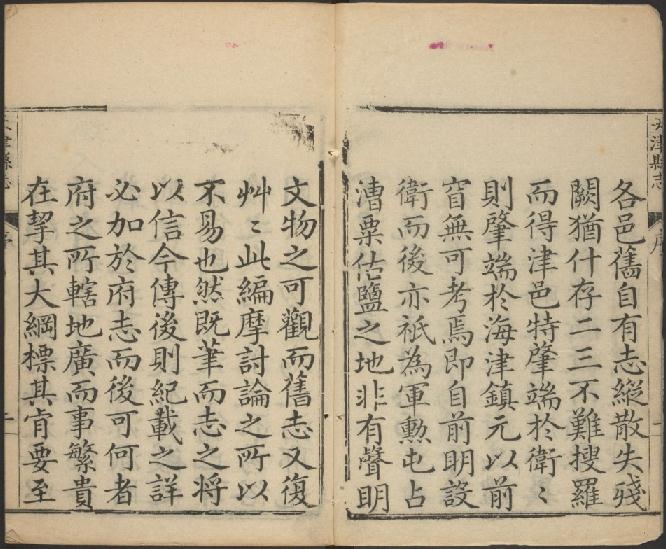 天津縣志
序
各邑舊自有志縱散失殘
闕猶什存二三不難搜羅
而得津邑特肇端於衛〻
則肇端於海津鎮元以前
窅無可考焉即自前明設
衛而後亦祇為軍勲屯占
漕粟估鹽之地非有聲明
文物之可觀而舊志又復
艸〻此編摩討論之所以
不易也然既筆而志之將
以信今傳後則紀載之詳
必加於府志而後可何者
府之所轄地廣而事繁貴
在挈其大綱標其肯要至
天津縣志
序
二